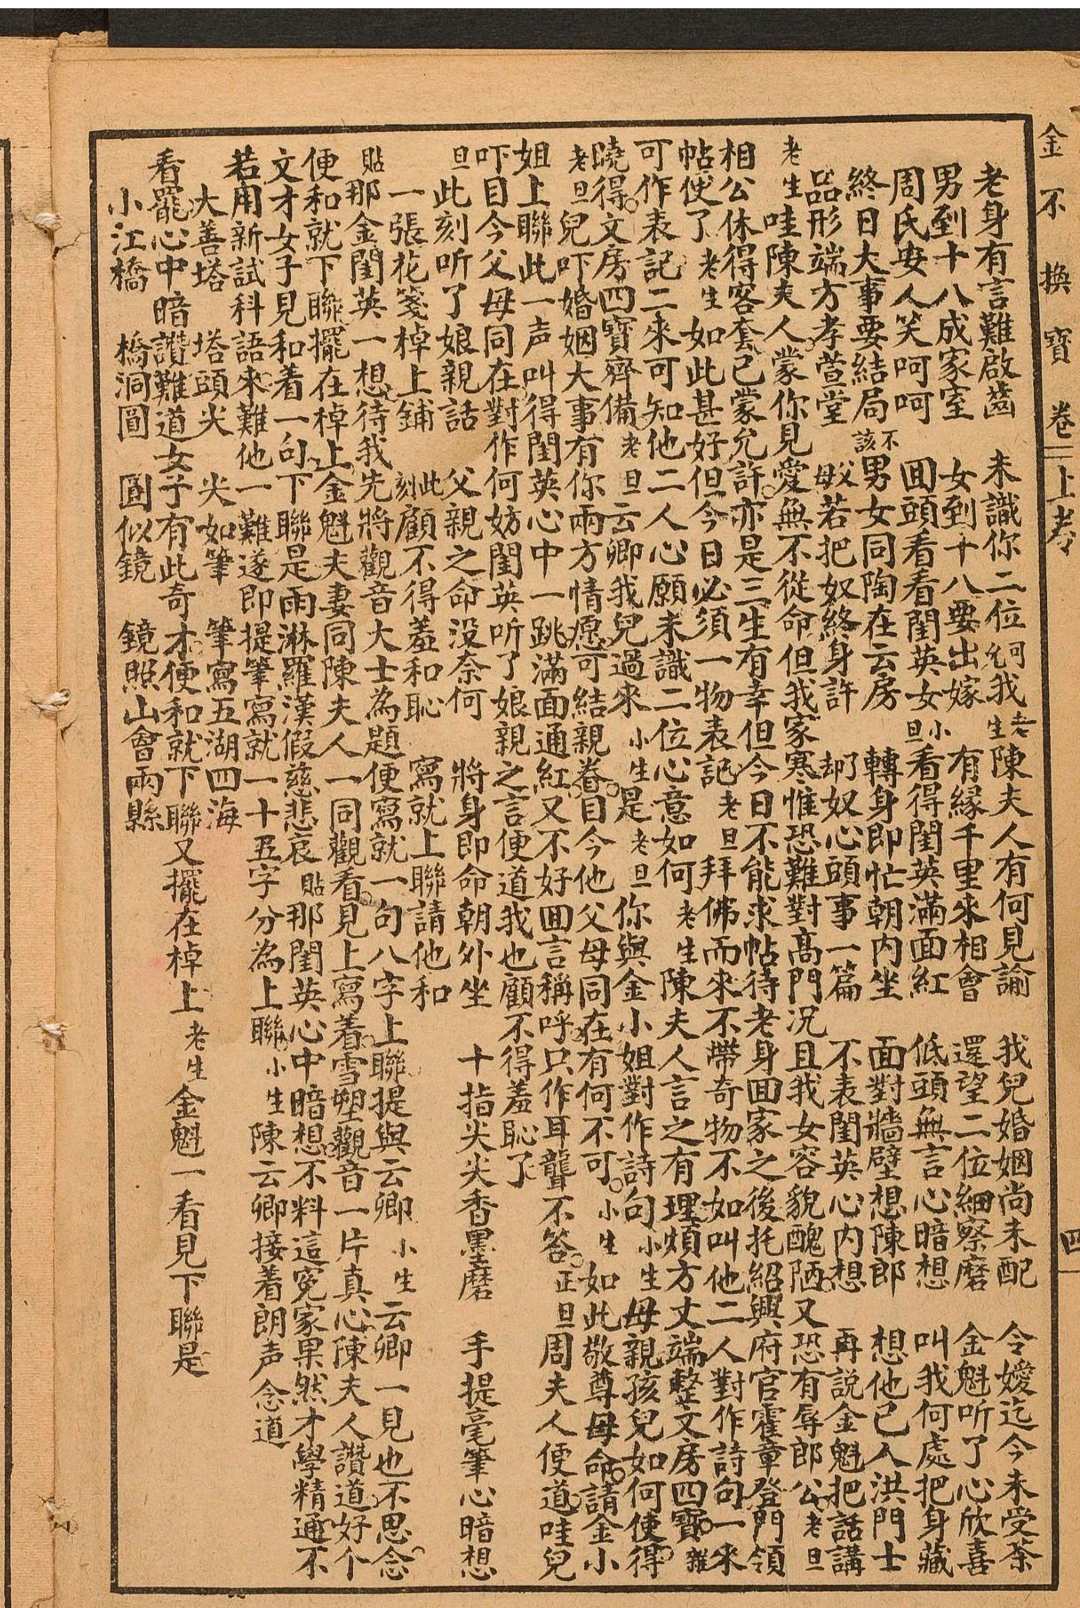 金不換寶卷二上考 四
老身有言難啟齒 未識你二位可允我 老生陳夫人有何見諭 我兒婚姻尚未配 令嬡迄今未受茶
男到十八成家室 女到十八要出嫁 有緣千里來相會 還望二位細察磨 金魁听了心欣喜
周氏安人笑呵呵 囬頭看看閨英女 小旦看得閨英滿面紅 低頭無言心暗想 叫我何處把身藏
終日大事要結局 該不男女同陶在云房 轉身即忙朝内坐 面對牆壁想陳郎 想他已入洪門士
品形端方孝萱堂 父母若把奴終身許 却了奴心頭事一篇 不表閨英心内想 再説金魁把話講
老生哇陳夫人蒙你見愛無不從命但我家寒惟恐難對高門况且我女容貌醜陋又恐有辱郎公老旦
相公休得客套已蒙允許亦是三生有幸但今日不能求帖待老身囬家之後托紹興府官霍章登門領
帖便了老生如此甚好但今日必須一物表記老旦拜佛而來不帶奇物不如叫他二人對作詩句一來
可作表記二來可知他二人心願未識二位心意如何老生陳夫人言之有理頗方丈端整文房四寶雜
曉得文房四寶齊備老旦云卿我兒過來小生是老旦你與金小姐對作詩句小生母親孩兒如何使得
老旦兒吓婚姻大事有你兩方情愿可結親眷目今他父母同在有何不可小生如此敬尊母命請金小
姐上聯此一声叫得閨英心中一跳滿面通紅又不好囬言稱呼只作耳聾不答正旦周夫人便道哇兒
吓目今父母同在對作何妨閨英听了娘親之言便道我也顧不得羞恥了
旦此刻听了娘親話 父親之命没奈何 將身即命朝外坐 十指尖尖香墨磨 手提毫筆心暗想
一張花箋棹上鋪 此刻顧不得羞和恥 寫就上聯請他和
貼那金閨英一想待我先將觀音大士為題便寫就一句八字上聯提與云卿小生云卿一見也不思念
便和就下聯擺在棹上金魁夫妻同陳夫人一同觀看見上寫着雪塑觀音一片真心陳夫人讚道好个
文才女子見和着一句下聯是雨淋羅漢假慈悲哀貼那閨英心中暗想不料這寃家果然才學精通不
若用新試科語來難他一難遂即提筆寫就一十五字分為上聯小生陳云卿接着朗声念道
大善塔 塔頭尖 尖如筆 筆寫五湖四海
看罷心中暗讚難道女子有此奇才便和就下聯又擺在棹上老生金魁一看見下聯是
小江橋 橋洞圓 圓似鏡 鏡照山會兩縣